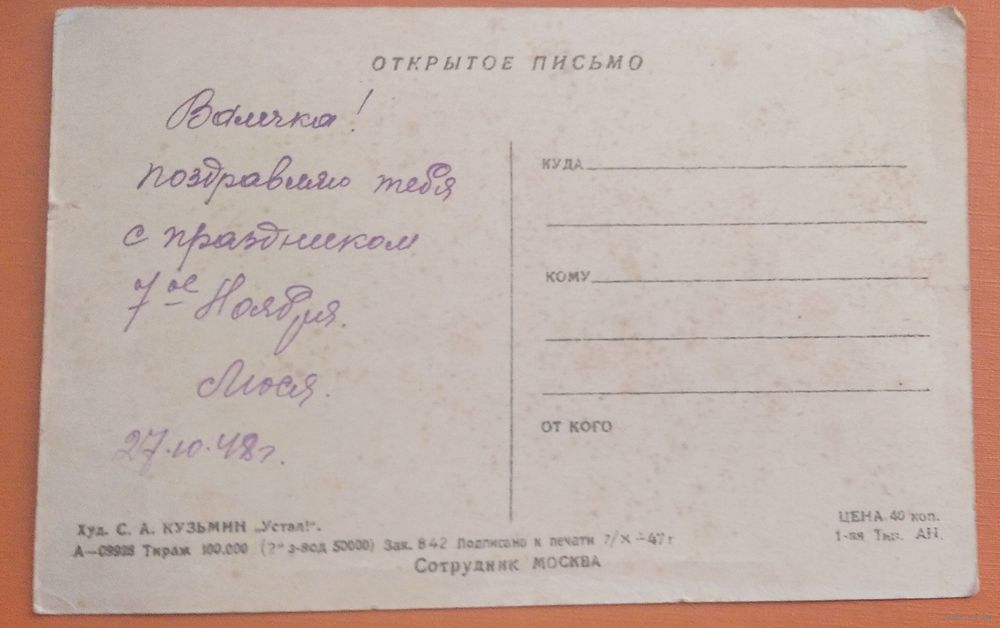 ОТКРЫТОЕ ПИСЬМО
Валичка!
поздравляю тебя
с праздником
7ое Ноября.
Люся.
27.10.48г.
КУДА
КОМУ
ОТ КОГО
Худ. С. А. КУЗЬМИН „Устал!".
Тираж 100.000 (2й з-вод 50000) Зак. 842 Подписано к печати 7/X-47г
Сотрудник МОСКВА
ЦЕНА 40 коп.
1-ая Тип. АН.